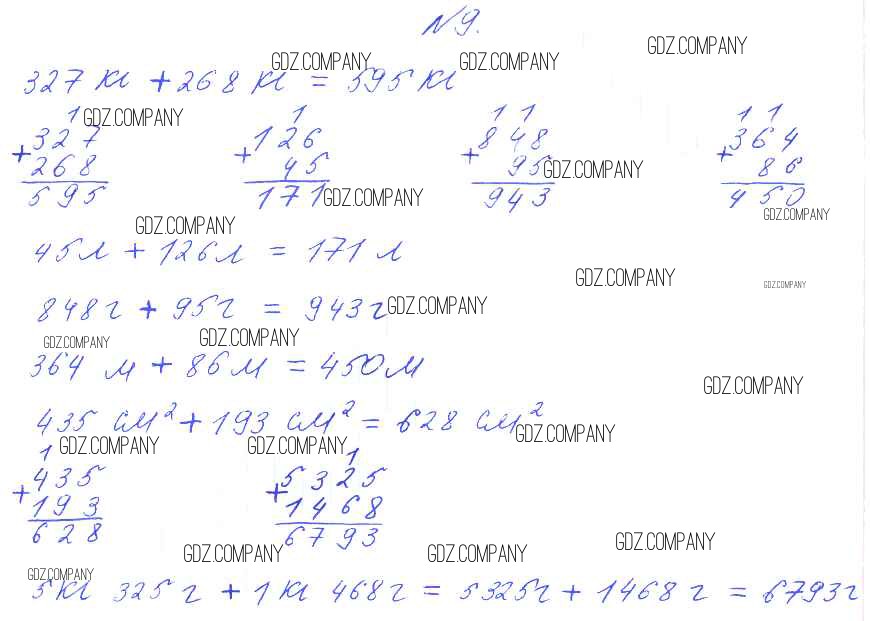 N 9.
GDZ.COMPANY GDZ.COMPANY GDZ.COMPANY
327 кг + 268 кг = 595 кг
1 GDZ.COMPANY 1 1 1 1 1
+ 327 + 126 + 848 + 364
268 45 95 GDZ.COMPANY 86
595 171 GDZ.COMPANY 943 450
GDZ.COMPANY GDZ.COMPANY
45 л + 126 л = 171 л
GDZ.COMPANY GDZ.COMPANY
848 г + 95 г = 943 г GDZ.COMPANY
GDZ.COMPANY GDZ.COMPANY
364 м + 86 м = 450 м
GDZ.COMPANY
435 см² + 193 см² = 628 см²
GDZ.COMPANY
1 GDZ.COMPANY GDZ.COMPANY 1
+ 435 + 5325
193 1468
628 6793
GDZ.COMPANY GDZ.COMPANY GDZ.COMPANY
GDZ.COMPANY
5 кг 325 г + 1 кг 468 г = 5325 г + 1468 г = 6793 г